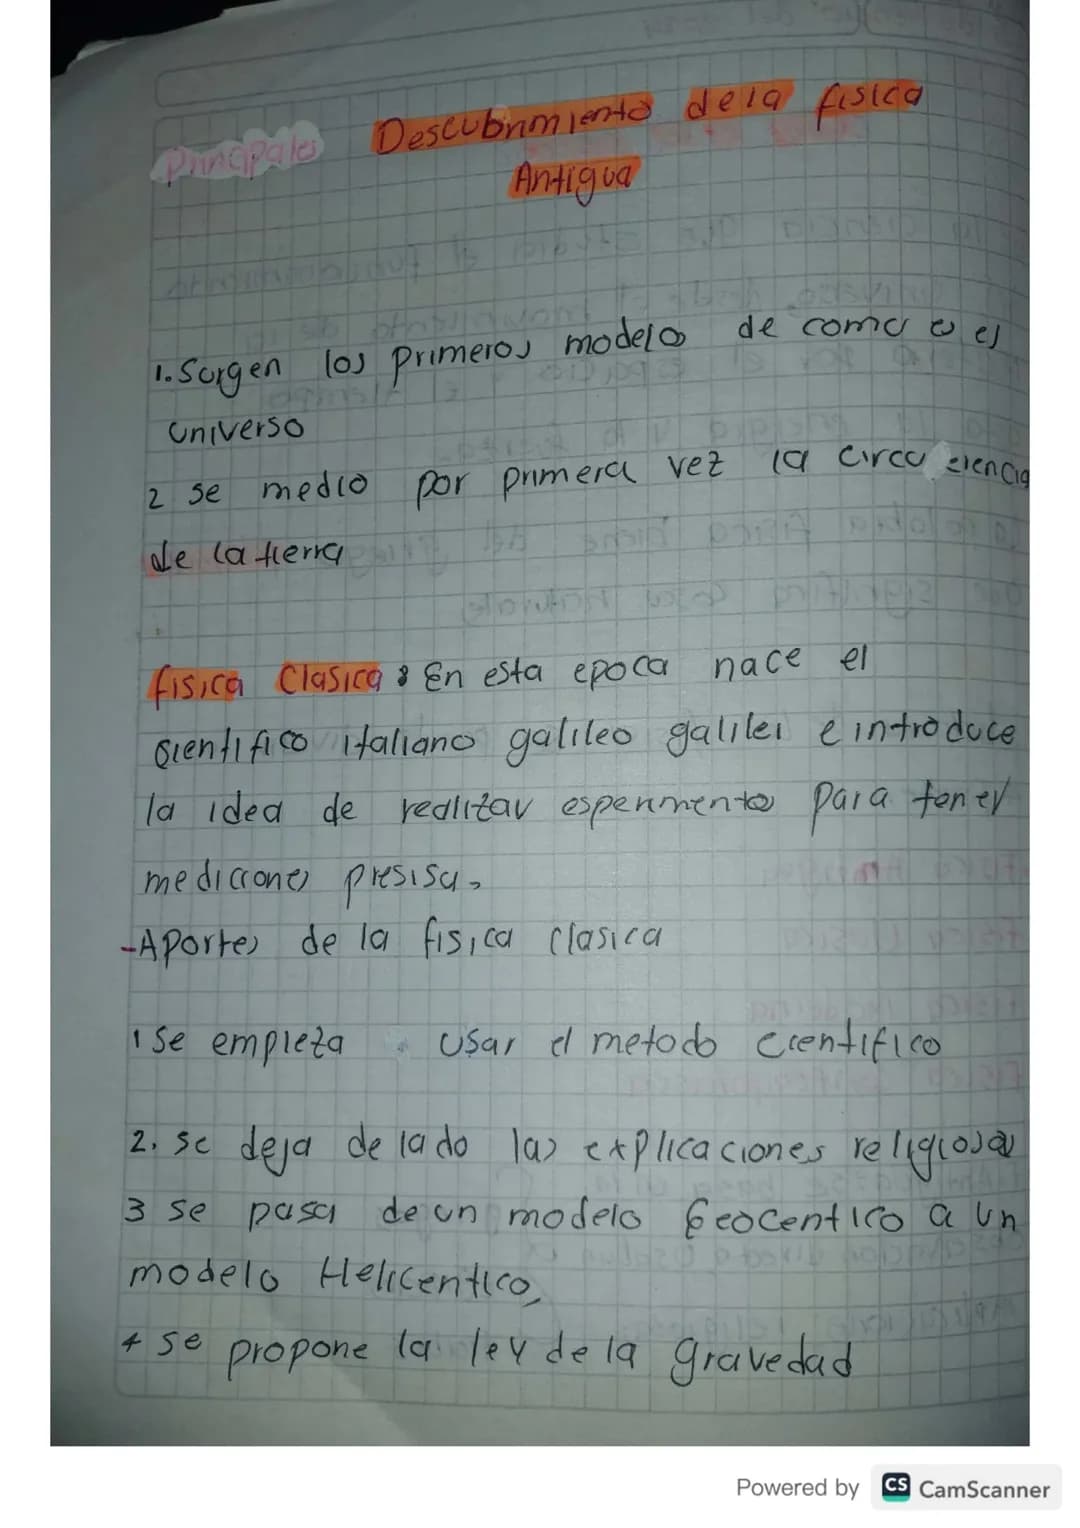 Principales Descubrimiento dela fisica
Antigua
1. Surgen los primeros modelo de como es
universo
2 se medio por primera vez la circu
de la tierra
fisica Clasica: En esta epoca nace el
cientifico italiano galileo galilei e introduce
la idea de realizar esperimento para tener
medicione presisa.
-Aportes de la fisica clasica
1 Se empieza usar el metodo cientifico
2. se deja de lado las explicaciones religiosa
3 se pasa de un modelo Geocentico a un
modelo Helicentico,
4 se propone la ley de la gravedad
Powered by CS CamScanner